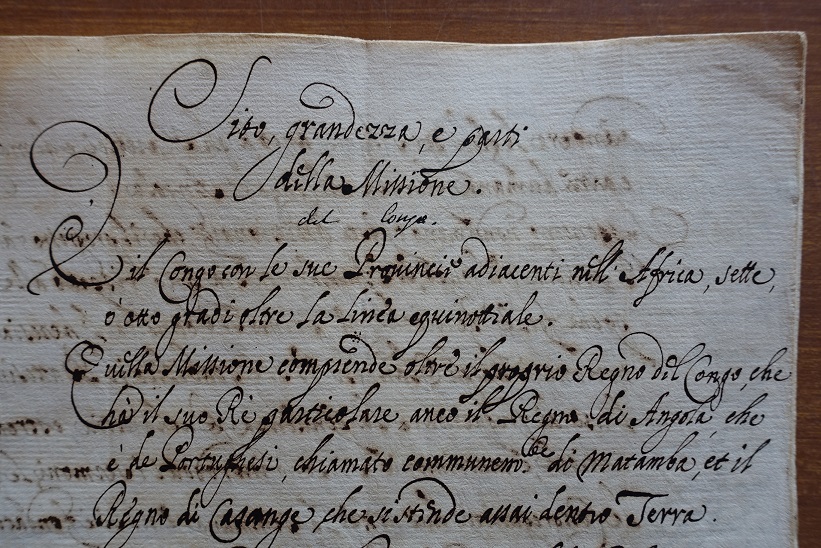 Sito, grandezza, e parti
della Missione.
del Congo.
È il Congo con le sue Provincie adiacenti nell' Africa, sette,
ò otto gradi oltre la Linea equinottiale.
Quella Missione comprende oltre il proprio Regno del Congo, che
hà il suo Rè particolare anco il Regno di Angola, che
è de Portughesi, chiamato communem.te di Matamba, et il
Regno di Cazange che si stende assai dentro Terra.